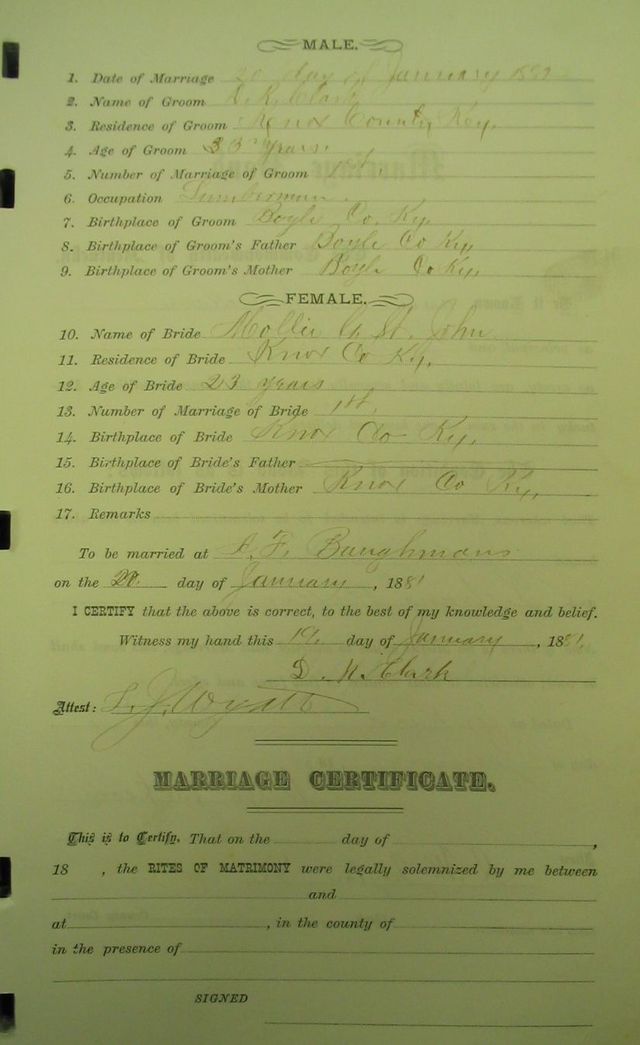 MALE.
1. Date of Marriage 20 day of January 188
2. Name of Groom D. K. Clark
3. Residence of Groom Knox County Ky,
4. Age of Groom 33 years.
5. Number of Marriage of Groom 1st,
6. Occupation Lumberman.
7. Birthplace of Groom Boyle Co. Ky,
8. Birthplace of Groom's Father Boyle Co Ky,
9. Birthplace of Groom's Mother Boyle Co Ky,
FEMALE.
10. Name of Bride Mollie St. John
11. Residence of Bride Knox Co Ky,
12. Age of Bride 23 years
13. Number of Marriage of Bride 1st,
14. Birthplace of Bride Knox Co Ky,
15. Birthplace of Bride's Father
16. Birthplace of Bride's Mother Knox Co Ky,
17. Remarks
To be married at F. Baughmans
on the 20 day of January, 1881
I CERTIFY that the above is correct, to the best of my knowledge and belief.
Witness my hand this 19, day of January, 1881,
D. Clark
Attest: J. Wyatt
MARRIAGE CERTIFICATE.
This is to Certify, That on the day of ,
18 , the RITES OF MATRIMONY were legally solemnized by me between
and
at , in the county of
in the presence of
SIGNED